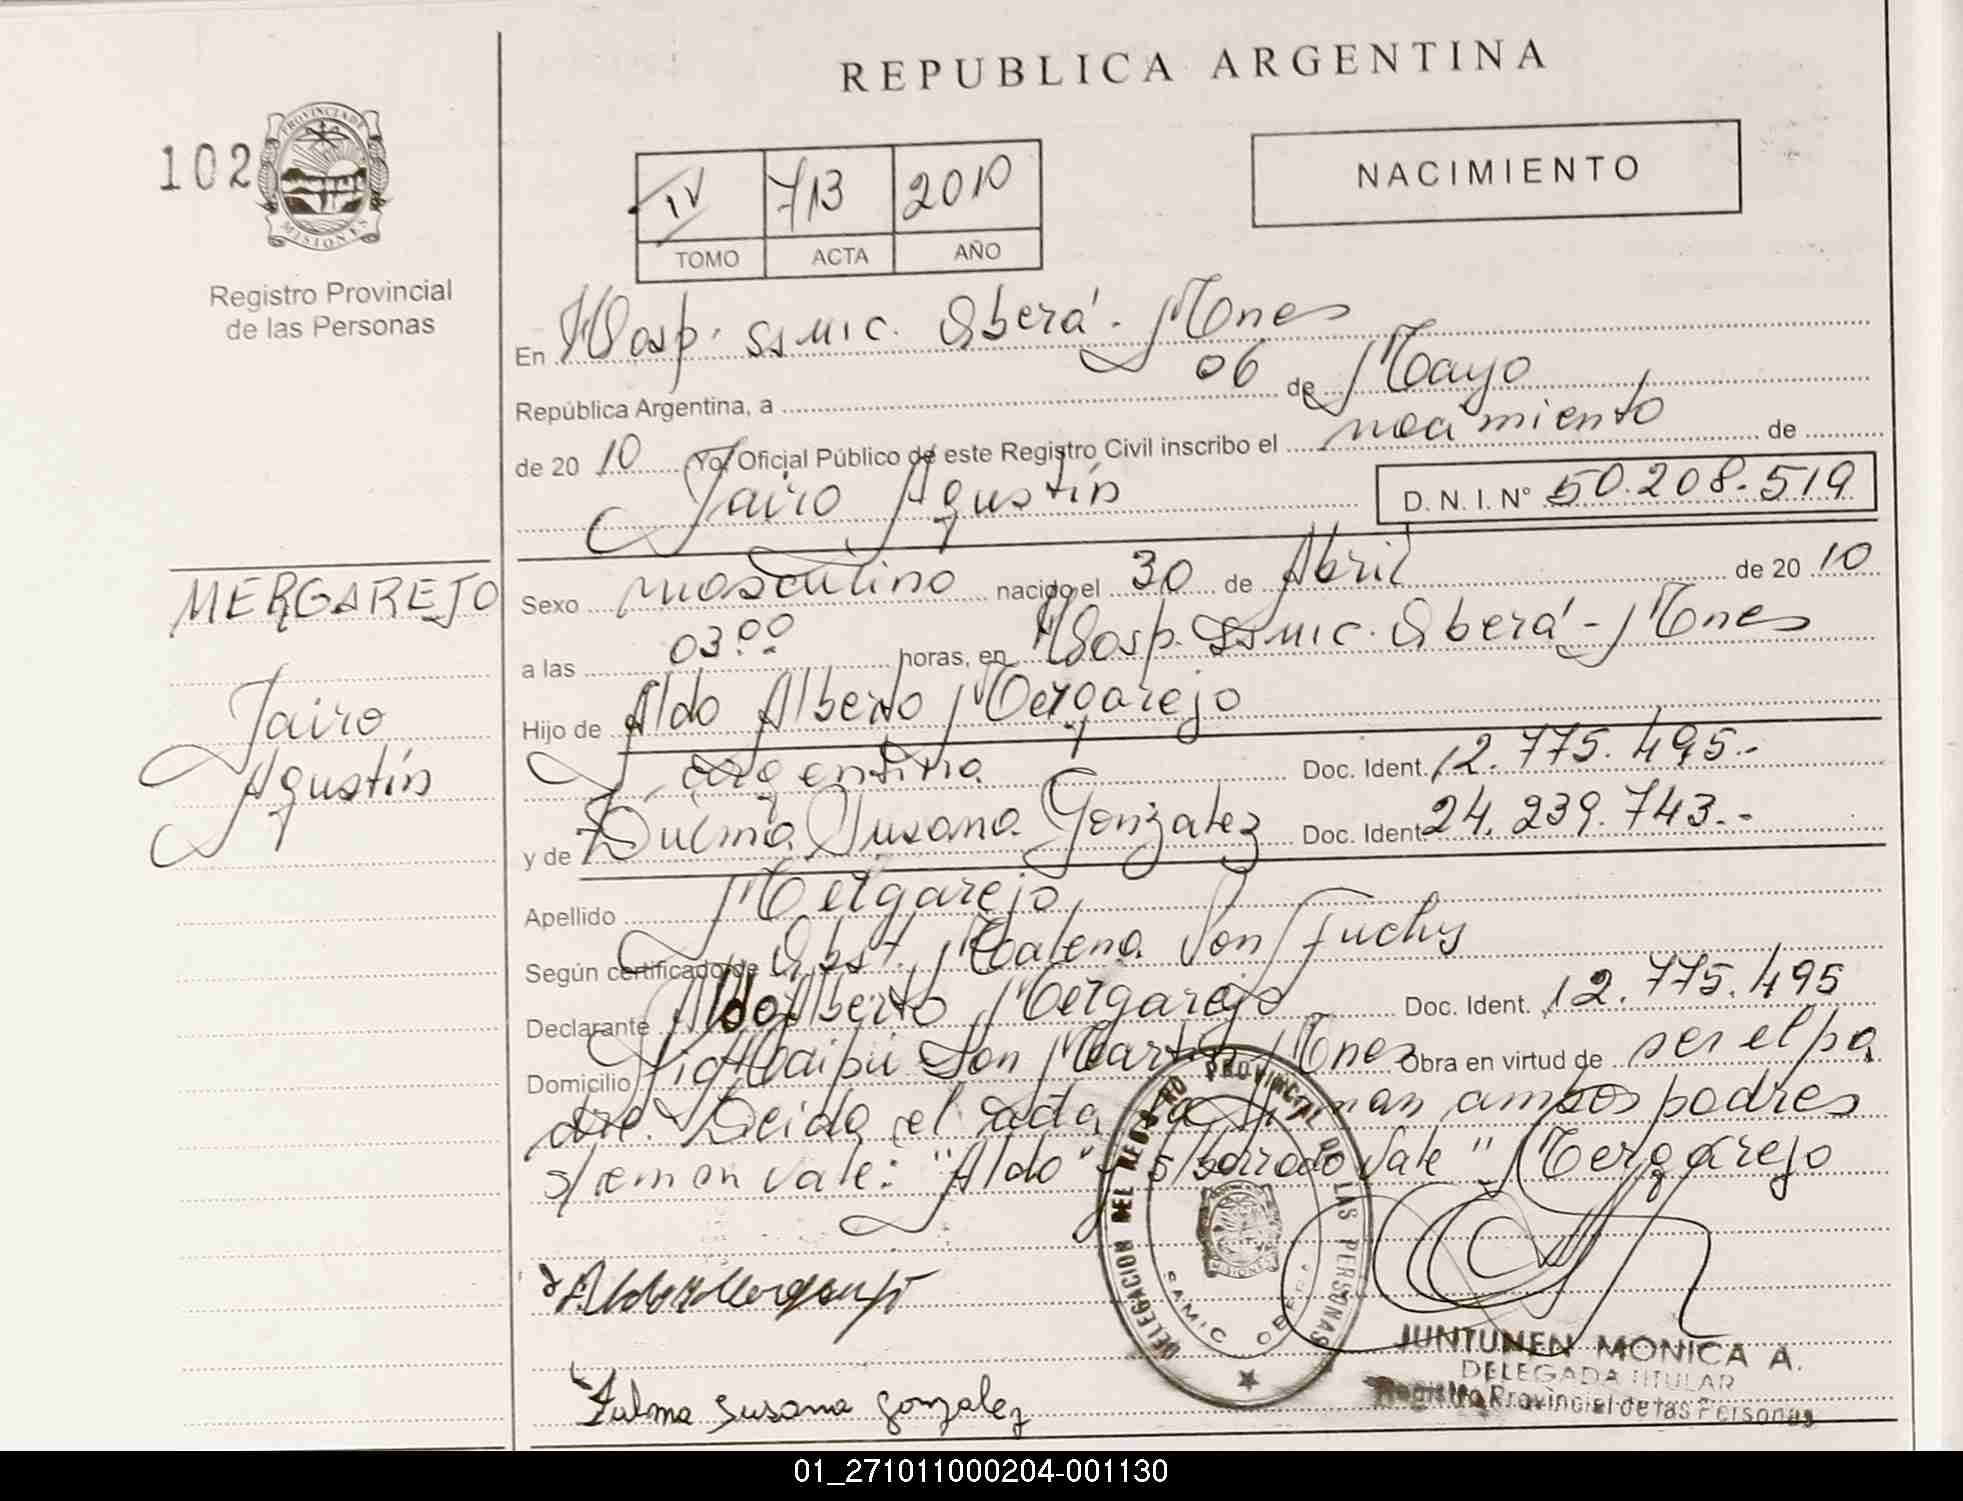 REPUBLICA ARGENTINA
102
PROVINCIA DE
MISIONES
Registro Provincial
de las Personas
IV 713 2010
TOMO ACTA AÑO
NACIMIENTO
En Hosp. SSMIC. Oberá - Mnes
República Argentina, a 06 de Mayo
de 20 10 Yo, Oficial Público de este Registro Civil inscribo el nacimiento de
Jairo Agustín D. N. I. N° 50.208.519
MERGAREJO
Jairo
Agustín
Sexo masculino nacido el 30 de Abril de 20 10
a las 03:00 horas, en Hosp. SSMIC. Oberá - Mnes
Hijo de Aldo Alberto Mergarejo
argentina Doc. Ident. 12.775.495.-
y de Susana Gonzalez Doc. Ident. 24.239.743.-
Apellido Mergarejo
Según certificado de Obst. Malena Von Fuchs
Declarante Aldo Alberto Mergarejo Doc. Ident. 12.775.495
Domicilio Maipú San Martín Mnes Obra en virtud de ser el pa
dre. Leida el acta, la firman ambos padres
s/em on vale: "Aldo" - s/borrado vale "Mergarejo
DELEGACION DEL REGISTRO PROVINCIAL DE LAS PERSONAS
SAMIC OBERA
MISIONES
Aldo Mergarejo
Zulma Susana Gonzalez
JUNTUNEN MONICA A.
DELEGADA TITULAR
Registro Provincial de las Personas
01_271011000204-001130